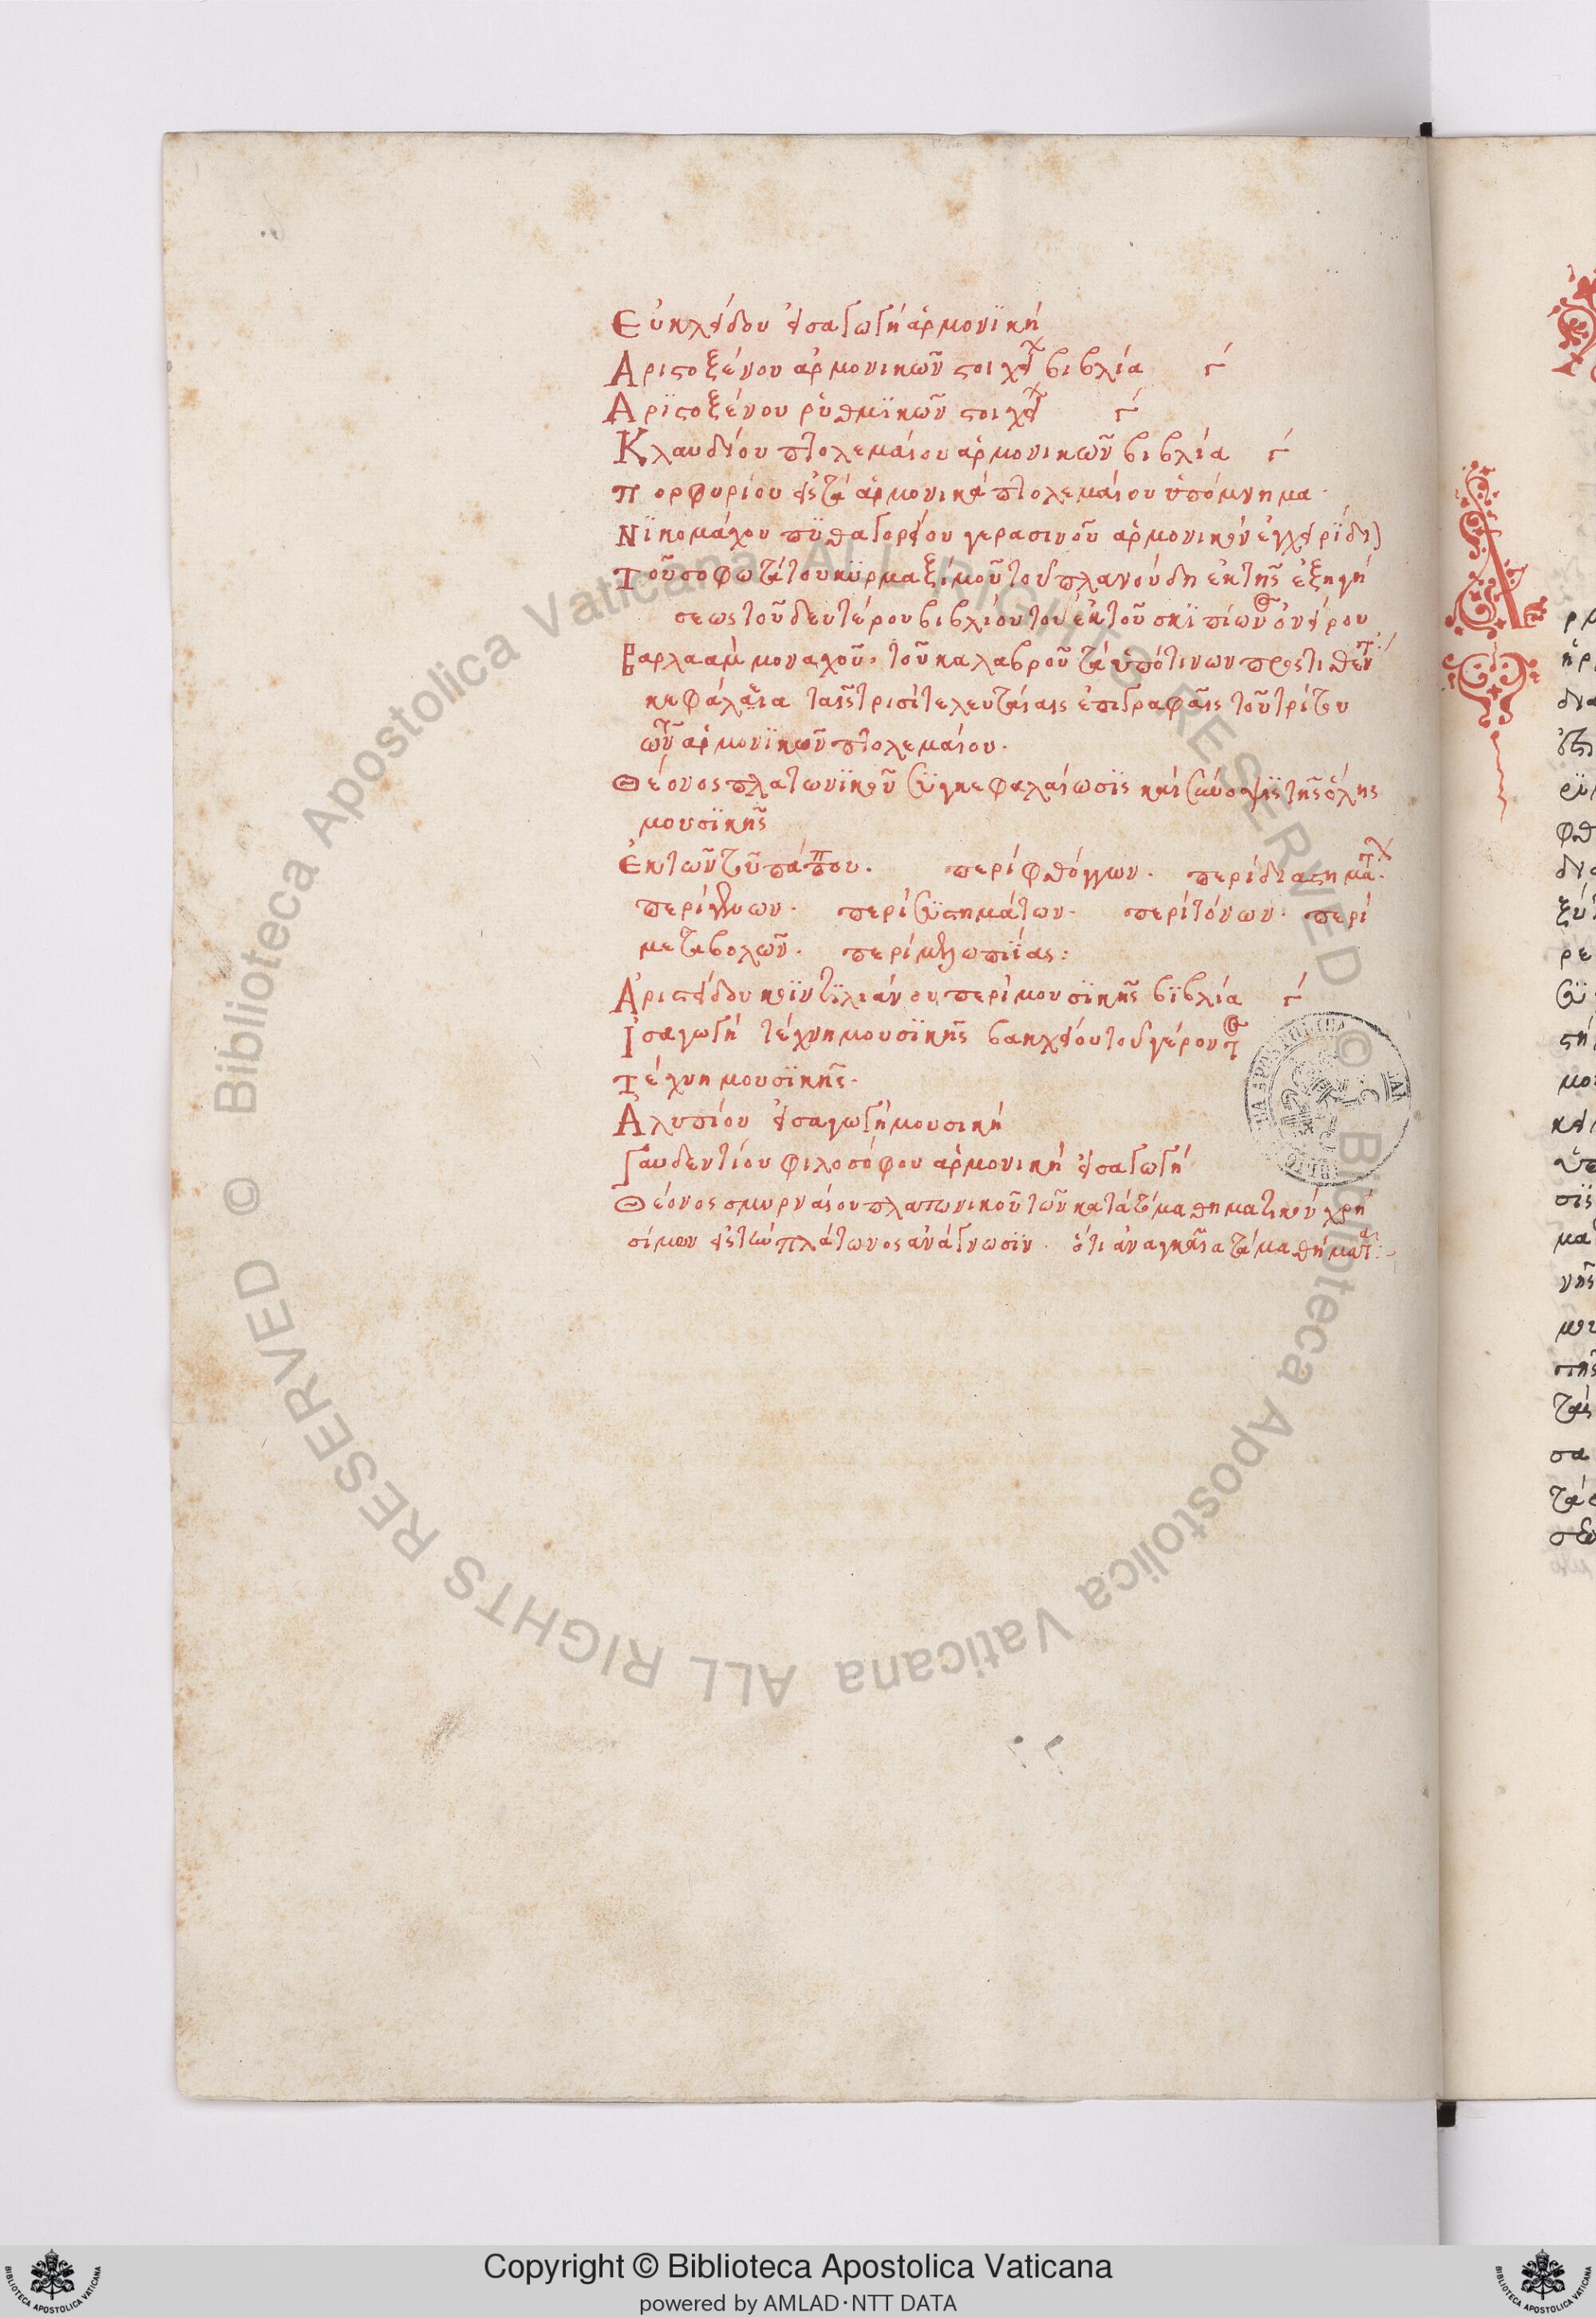 Εὐκλείδου εἰσαγωγὴ ἁρμονϊκή
Ἀριστοξένου ἁρμονικῶν στοιχεί βιβλία γ´
Ἀρϊστοξένου ῥυθμϊκῶν στοιχεί γ´
Κλαυδίου πτολεμαίου ἁρμονικῶν βιβλία γ´
Πορφυρίου εἰς τὰ ἁρμονικὰ πτολεμαίου ὑπόμνημα·
Νϊκομάχου πϋθαγορείου γερασινοῦ ἁρμονικὸν ἐγχειρϊδι
Τοῦ σοφωτάτου κϋρ μαξίμου τοῦ πλανούδη ἐκ τῆς ἐξηγή
σεως τοῦ δευτέρου βιβλίου τοῦ ἐκ τοῦ σκϊπίων ὀνείρου
Βαρλαὰμ μοναχοῦ, τοῦ καλαβροῦ τὰ ὑπό τινων προστιθεν
κεφάλαια ταῖς τρισὶ τελευταίαις ἐπιγραφαῖς τοῦ τρίτου
τῶν ἁρμονϊκῶν πτολεμαίου·
Θέονος πλατωνϊκοῦ συγκεφαλαίωσϊς καὶ σύνοψϊς τῆς ὅλης
μουσϊκῆς
Ἐκ τῶν τοῦ πάππου· περὶ φθόγγων· περὶ διαστημά·
περὶ γενῶν· περὶ συστημάτων· περὶ τόνων· περὶ
μεταβολῶν· περὶ μελοπιΐας:
Ἀριστείδου κοϊντϊλιάνου περὶ μουσϊκῆς βϊβλία γ´
Ἰσαγωγὴ τέχνη μουσϊκῆς βακχείου τοῦ γέροντ
Τέχνη μουσϊκῆς·
Ἀλυπίου εἰσαγωγὴ μουσική
Γαυδεντίου φιλοσόφου ἁρμονικὴ εἰσαγωγή
Θέονος σμυρναίου πλατωνικοῦ τῶν κατὰ τὸ μαθηματικὸν χρή
σίμων εἰς τὴν πλάτωνος ἀνάγνωσϊν· ὅτι ἀναγκαῖα τὰ μαθήματα:
© Biblioteca Apostolica Vaticana ALL RIGHTS RESERVED © Biblioteca Apostolica Vaticana ALL RIGHTS RESERVED
Copyright © Biblioteca Apostolica Vaticana
powered by AMLAD·NTT DATA